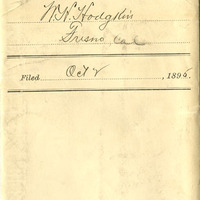 W. H. Hodgkin
Fresno, Cal
Filed Oct 2, 1896.